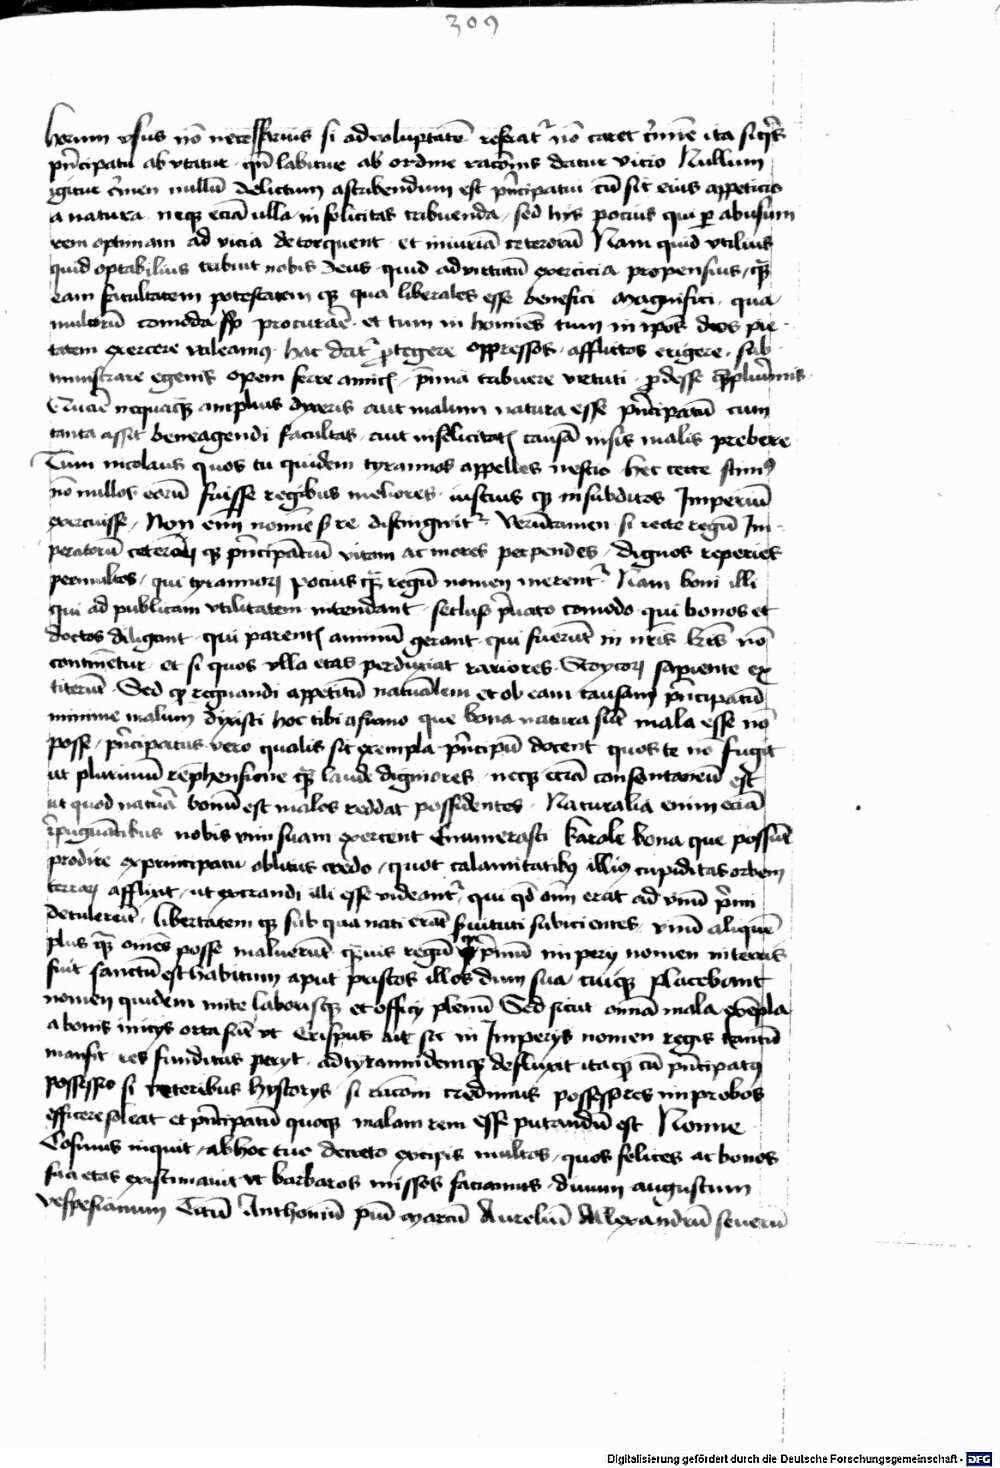 309
horum vsus nō necessarius si ad voluptatē referat᷑ nō caret c̓mīe ita si q̓s
pn̄cipatu abvtatur qn̄ labitur ab ordine racōnis datur vicio Nullum
igitur c̓men nullū delictum asscribendum est pn̄cipatui cū sit eius appeticio
a natura neqꝫ eciā ulla infelicitas tribuenda sed hys pocius qui ꝑ abusum
rem optimam ad vicia detorquent et iniuriā ceterorū Nam quid vtilius
quid optabilius tribuit nobis deus quid ad virtutū exercicia propensius qꝫ̄
eam facultatem potestatem qꝫ qua liberales esse benefici magnifici qua
multorū comoda procurare et tum in homīes tum in ip̄os deos pie
tatem exercere valeamꝰ hac dat᷑ ꝓtegere oppressos afflictos erigere sub
ministrare egenis opem ferre amicis p̄mia tribuere virtuti ꝓdesse qꝫplurimis
nequaqꝫ̄ amplius dixeris aut malum natura esse pn̄cipatū cum
tanta assit bene agendi facultas aut infelicitatis causā nisi malis prebere
Tum nicolaus quos tu quidem tyrannos appelles nescio hec certe scimꝰ
nō nullos eorū fuisse regibus meliores iustius qꝫ in subditos Imperiū
exercuisse Non enī nomīe s̄ re distingwit᷑ Verūtamen si recte regū Im
peratorū ceterorū qꝫ pn̄cipātiū vitam ac mores perpendes dignos reperies
permultos qui tyrannorꝝ pocius qꝫ̄ regū nomen merent᷑ Nam boni illi
qui ad publicam vtilitatem intendant secluso p̄uato comodo qui bonos et
doctos diligant qui parentis animū gerant qui fuerūt in nr̄is lr̄is nō
continētur et si quos vlla etas perduxiat rariores Stoycorꝝ sapiente ex
titerūt Sed qꝫ regnandi appetitū natuālem et ob eam causam pn̄cipatū
minime malum dixisti hoc tibi asumo que bona natura sūt mala esse nō
posse pn̄cipatus vero qualis sit exempla pn̄cipū docent quos te nō fugit
ut plurimū rep̄hensione qꝫ̄ laude digniores neqꝫ eciā consentaneū est
ut quod natuā bonū est malos reddat possidentes Naturalia enim eciā
r̓pugnātibus nobis vim suam exercent Enumerasti karole bona que possūt
prodire ex principatu oblitus credo quot calamitatibꝰ illiꝰ cupiditas orbem
terrarꝝ afflixit ut execrandi illi esse videant᷑ qui qd̄ om̄ erat ad vnū p̄mi
detulerūt libertatem qꝫ sub qua nati erāt s̓uituti subicientes vnū aliquē
plus qꝫ̄ omēs posse maluerūt qꝫ̄uis regū p̄mū impery nomen in terris
fuit sanctū est habitum aput priscos illos dum sua cuiqꝫ placebant
nomen quidem mite laborisqꝫ et officy plenū Sed sicut omīa mala exēpla
a bonis inicys orta sūt vt Crispus ait sic in Imperys nomen regis tantū
mansit res funditus peryt ad tyrannidemqꝫ defluxit itaqꝫ cū pn̄cipatꝰ
possessio si veteribus hystorys si racōni credimus possessores improbos
efficere soleat et pn̄cipatū quoqꝫ malam rem esse putandū est Nonne
Cosmus inquit ab hoc tuo decreto excipis multos quos felices ac bonos
sua etas existimauit vt barbaros missos faciamus diuum augustum
vespesianum Titū Anthoniū piū Marcū Aureliū Allexandrū seuerū
Digitalisierung gefördert durch die Deutsche Forschungsgemeinschaft - DFG